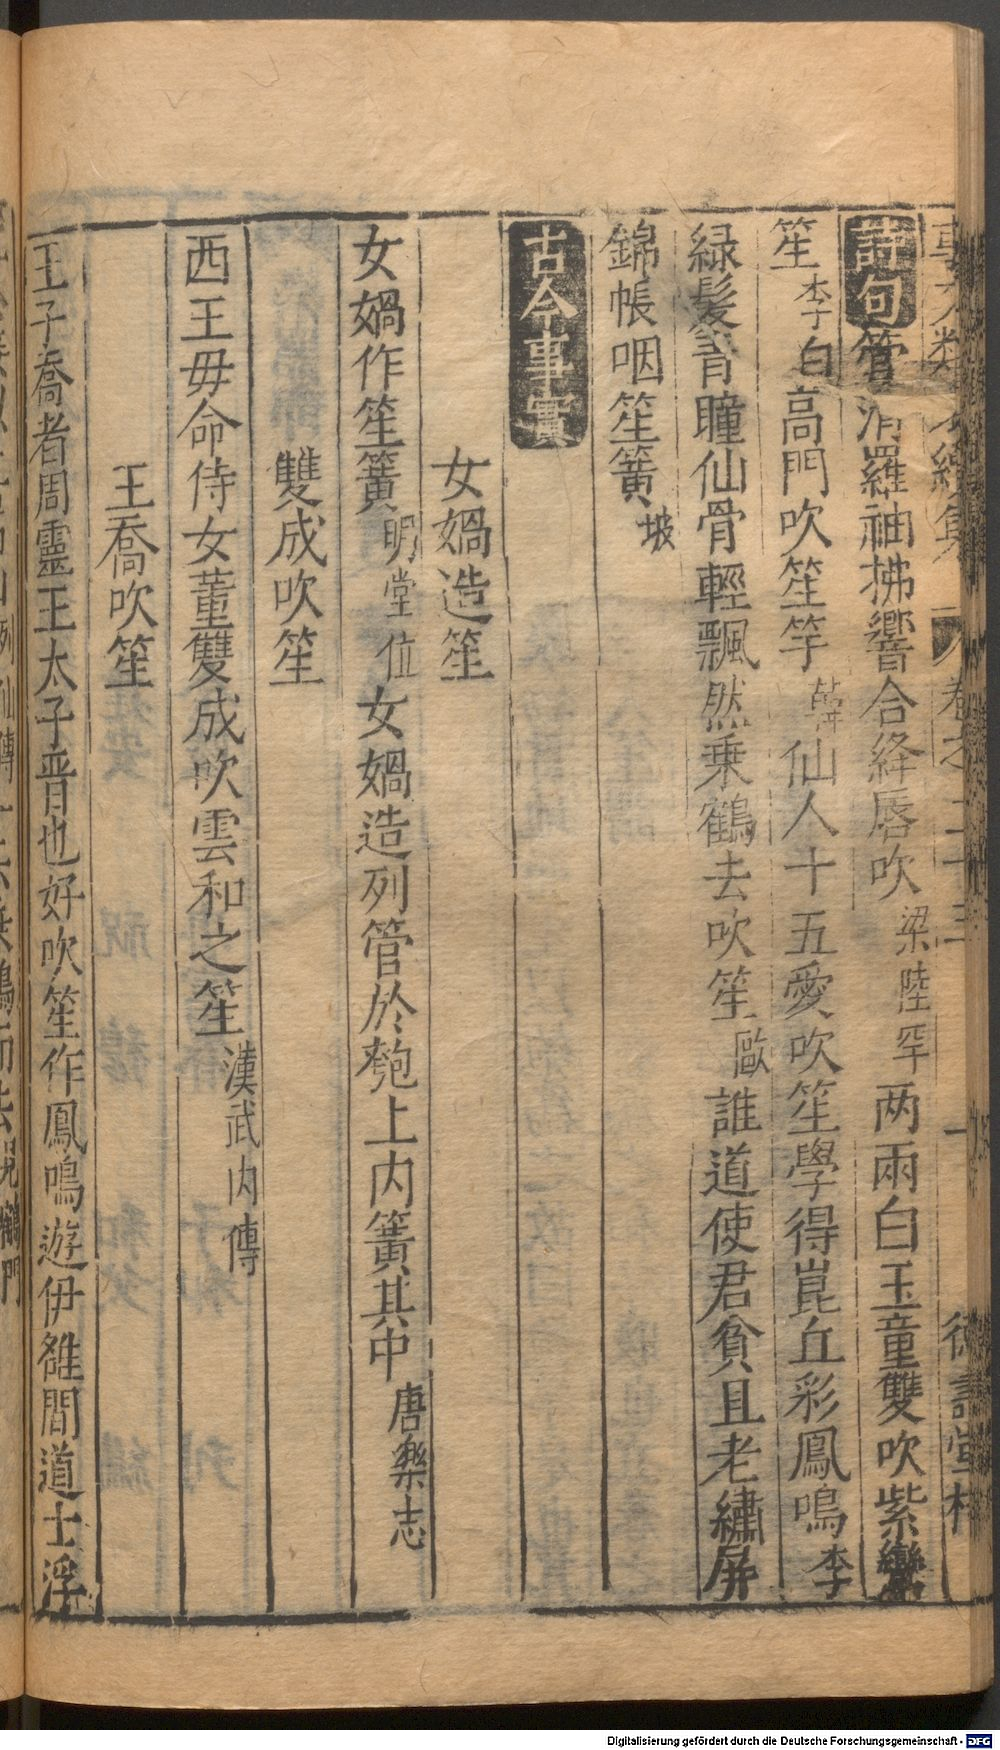 續集 卷之二十三 一 德壽堂梓
詩句管清羅袖拂響合絳唇吹梁陸罕两兩白玉童雙吹紫鸞
笙李白高門吹笙竽韓仙人十五愛吹笙學得崑丘彩鳳鳴李
緑髮青瞳仙骨輕飄然乗鶴去吹笙歐誰道使君貧且老繡屏
錦帳咽笙簧坡
古今事實
女媧造笙
女媧作笙簧明堂位女媧造列管於匏上内簧其中唐樂志
雙成吹笙
西王毋命侍女董雙成吹雲和之笙漢武内傳
王喬吹笙
王子喬者周靈王太子晋也好吹笙作鳳鳴遊伊雒間道士浮
Digitalisierung gefördert durch die Deutsche Forschungsgemeinschaft - DFG